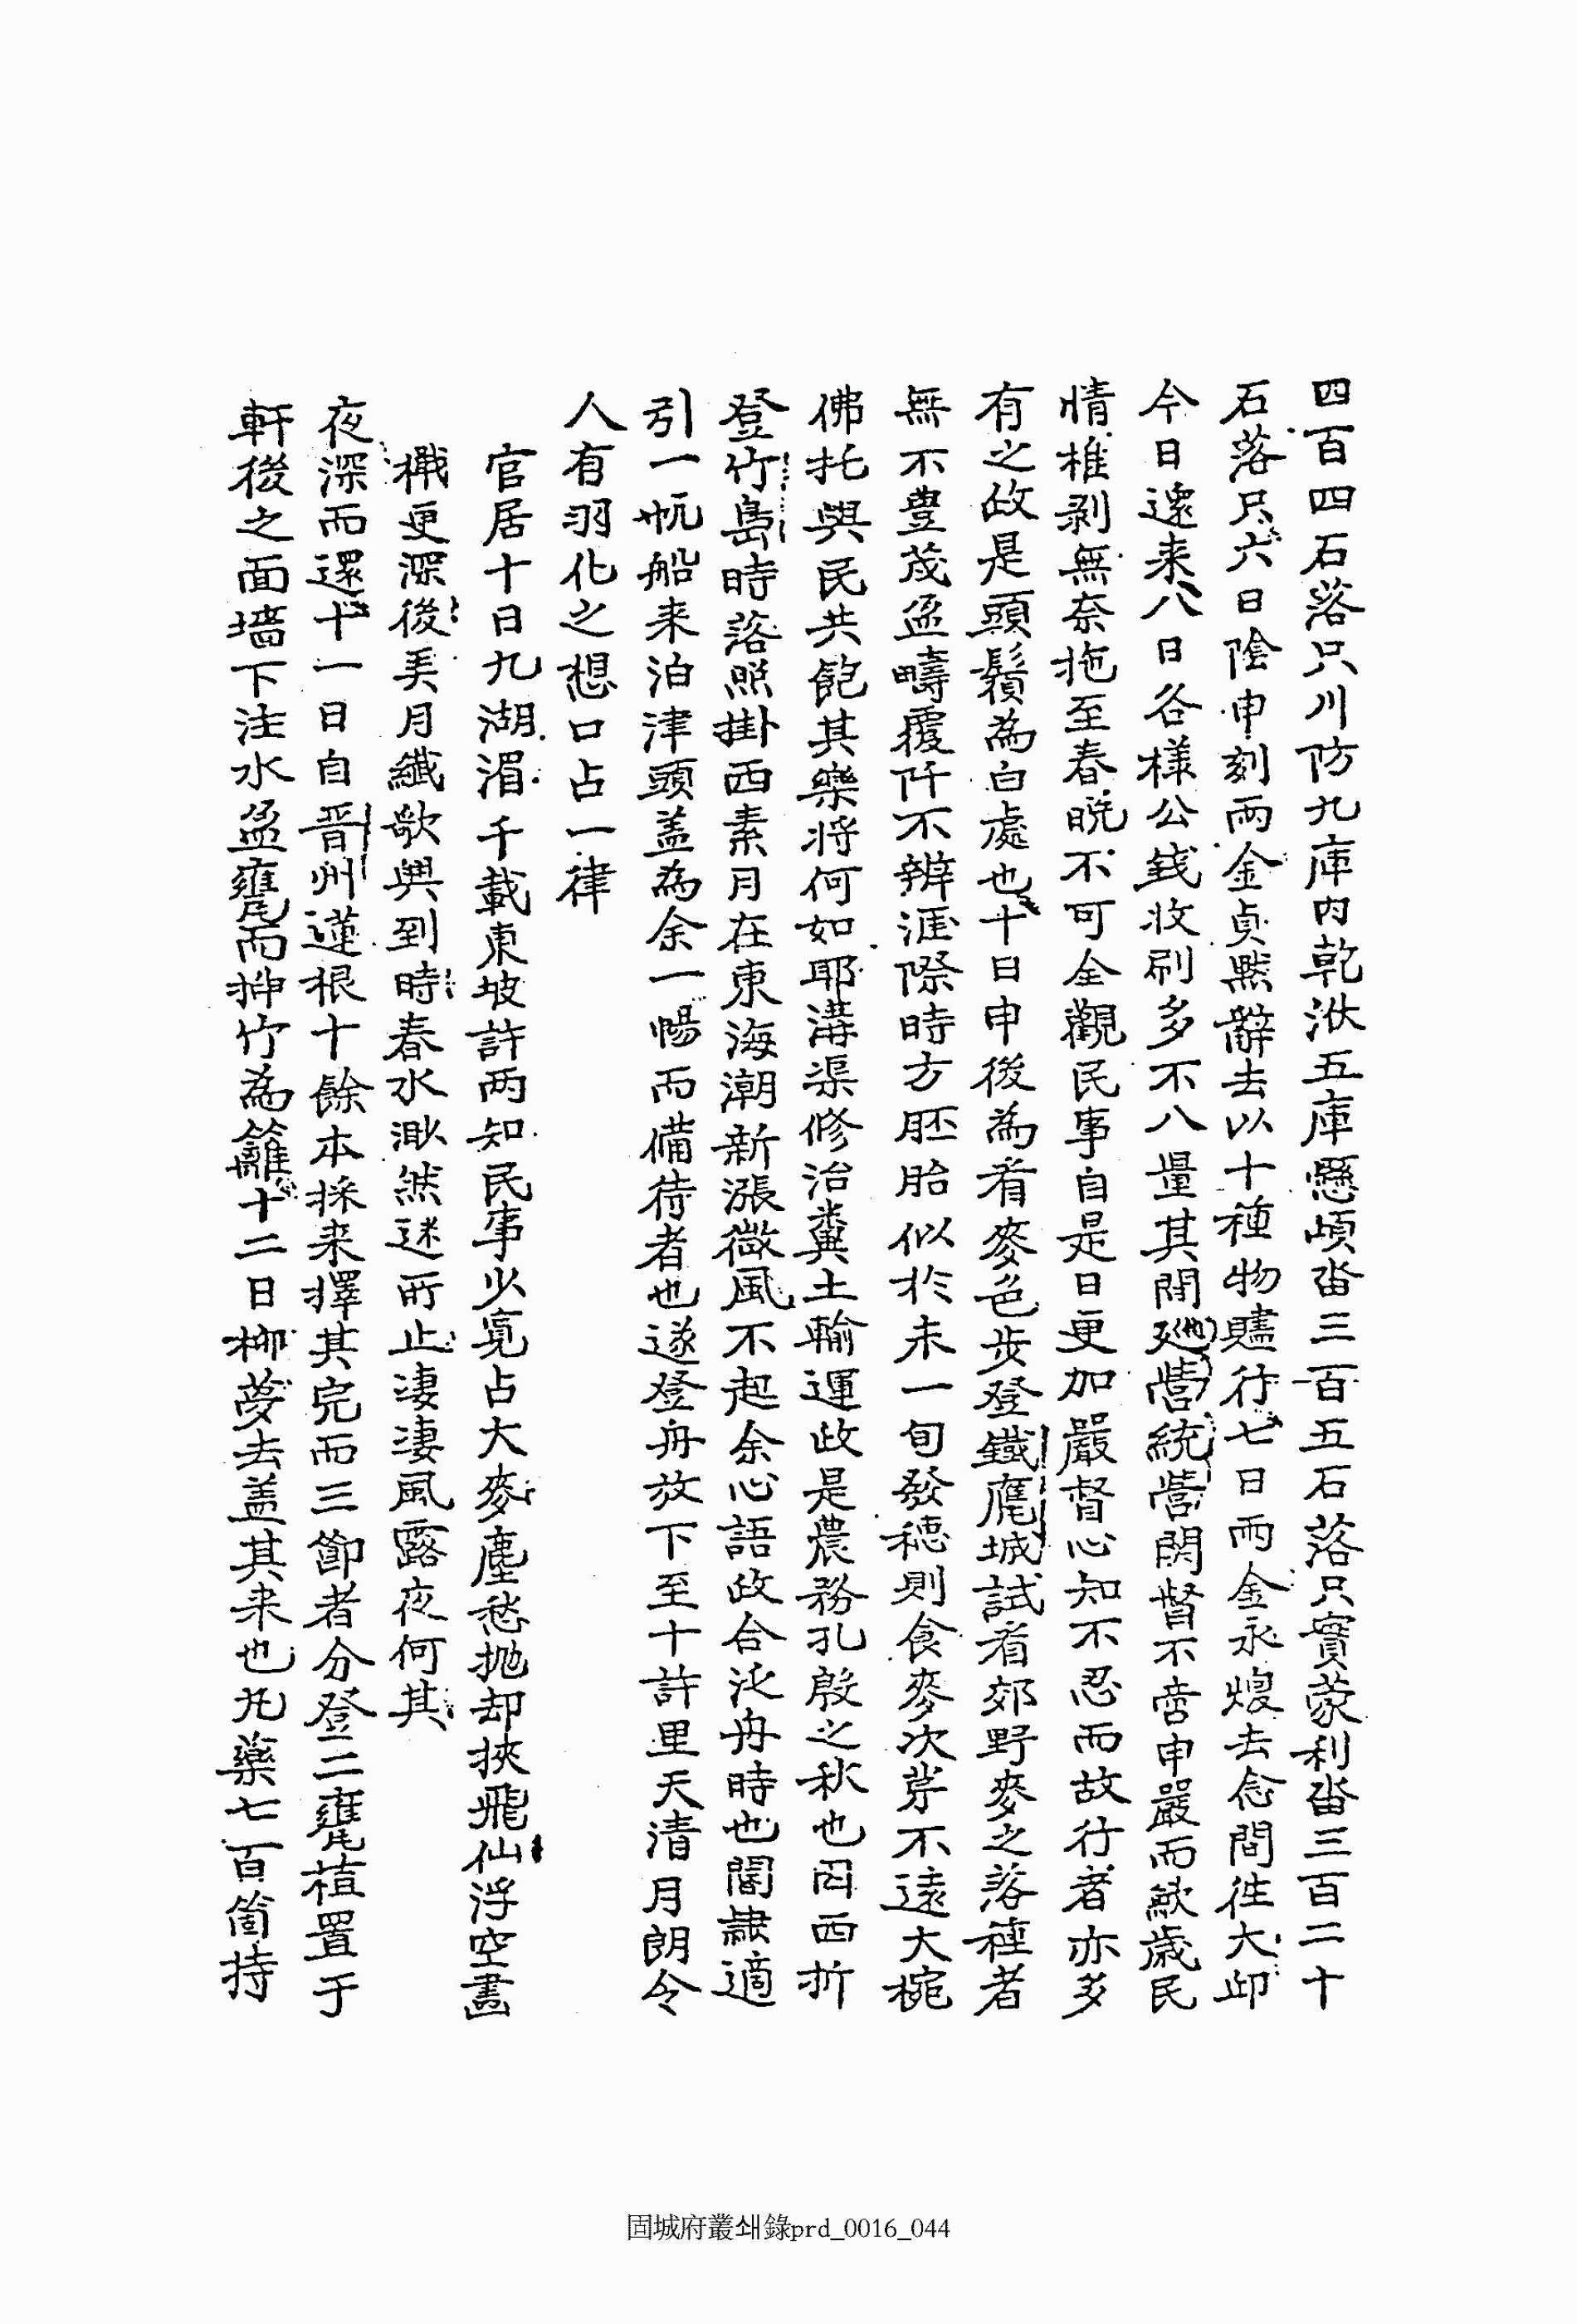 四百四石落只川防九庫內乾洑五庫懸頉畓三百五石落只實蒙利畓三百二十
石落只六日陰申刻雨金貞默辭去以十種物贐行七日雨金永燰去念間徃大邱
今日還来八日各樣公錢收刷多不入量其間廵營統營関督不啻申嚴而歉歲民
情椎剥無奈拖至春晩不可全觀民事自是日更加嚴督心知不忍而故行者亦多
有之政是頭鬚為白處也十日申後為看麥色步登鐵鷹城試看郊野麥之落種者
無不豊茂盈疇覆阡不辨涯際時方胚胎似於未一旬發穗則食麥次苐不遠大椀
佛托與民共飽其樂將何如耶溝渠修治糞土輸運政是農務孔殷之秋也因西折
登竹島時落照掛西素月在東海潮新漲微風不起余心語政合泛舟時也閽隷適
引一帆船来泊津頭盖為余一暢而備待者也遂登舟放下至十許里天清月朗令
人有羽化之想口占一律
官居十日九湖湄千載東坡許両知民事少寛占大麥塵愁抛却挾飛仙浮空畵
檝更深後美月纖歌興到時春水渺然迷所止凄凄風露夜何其
夜深而還十一日自晋州蓮根十餘本採来擇其完而三節者分登二甕植置于
軒後之面墻下注水盈甕而揷竹為籬十二日柳夢去盖其来也丸藥七百箇持
固城府叢쇄錄prd_0016_044